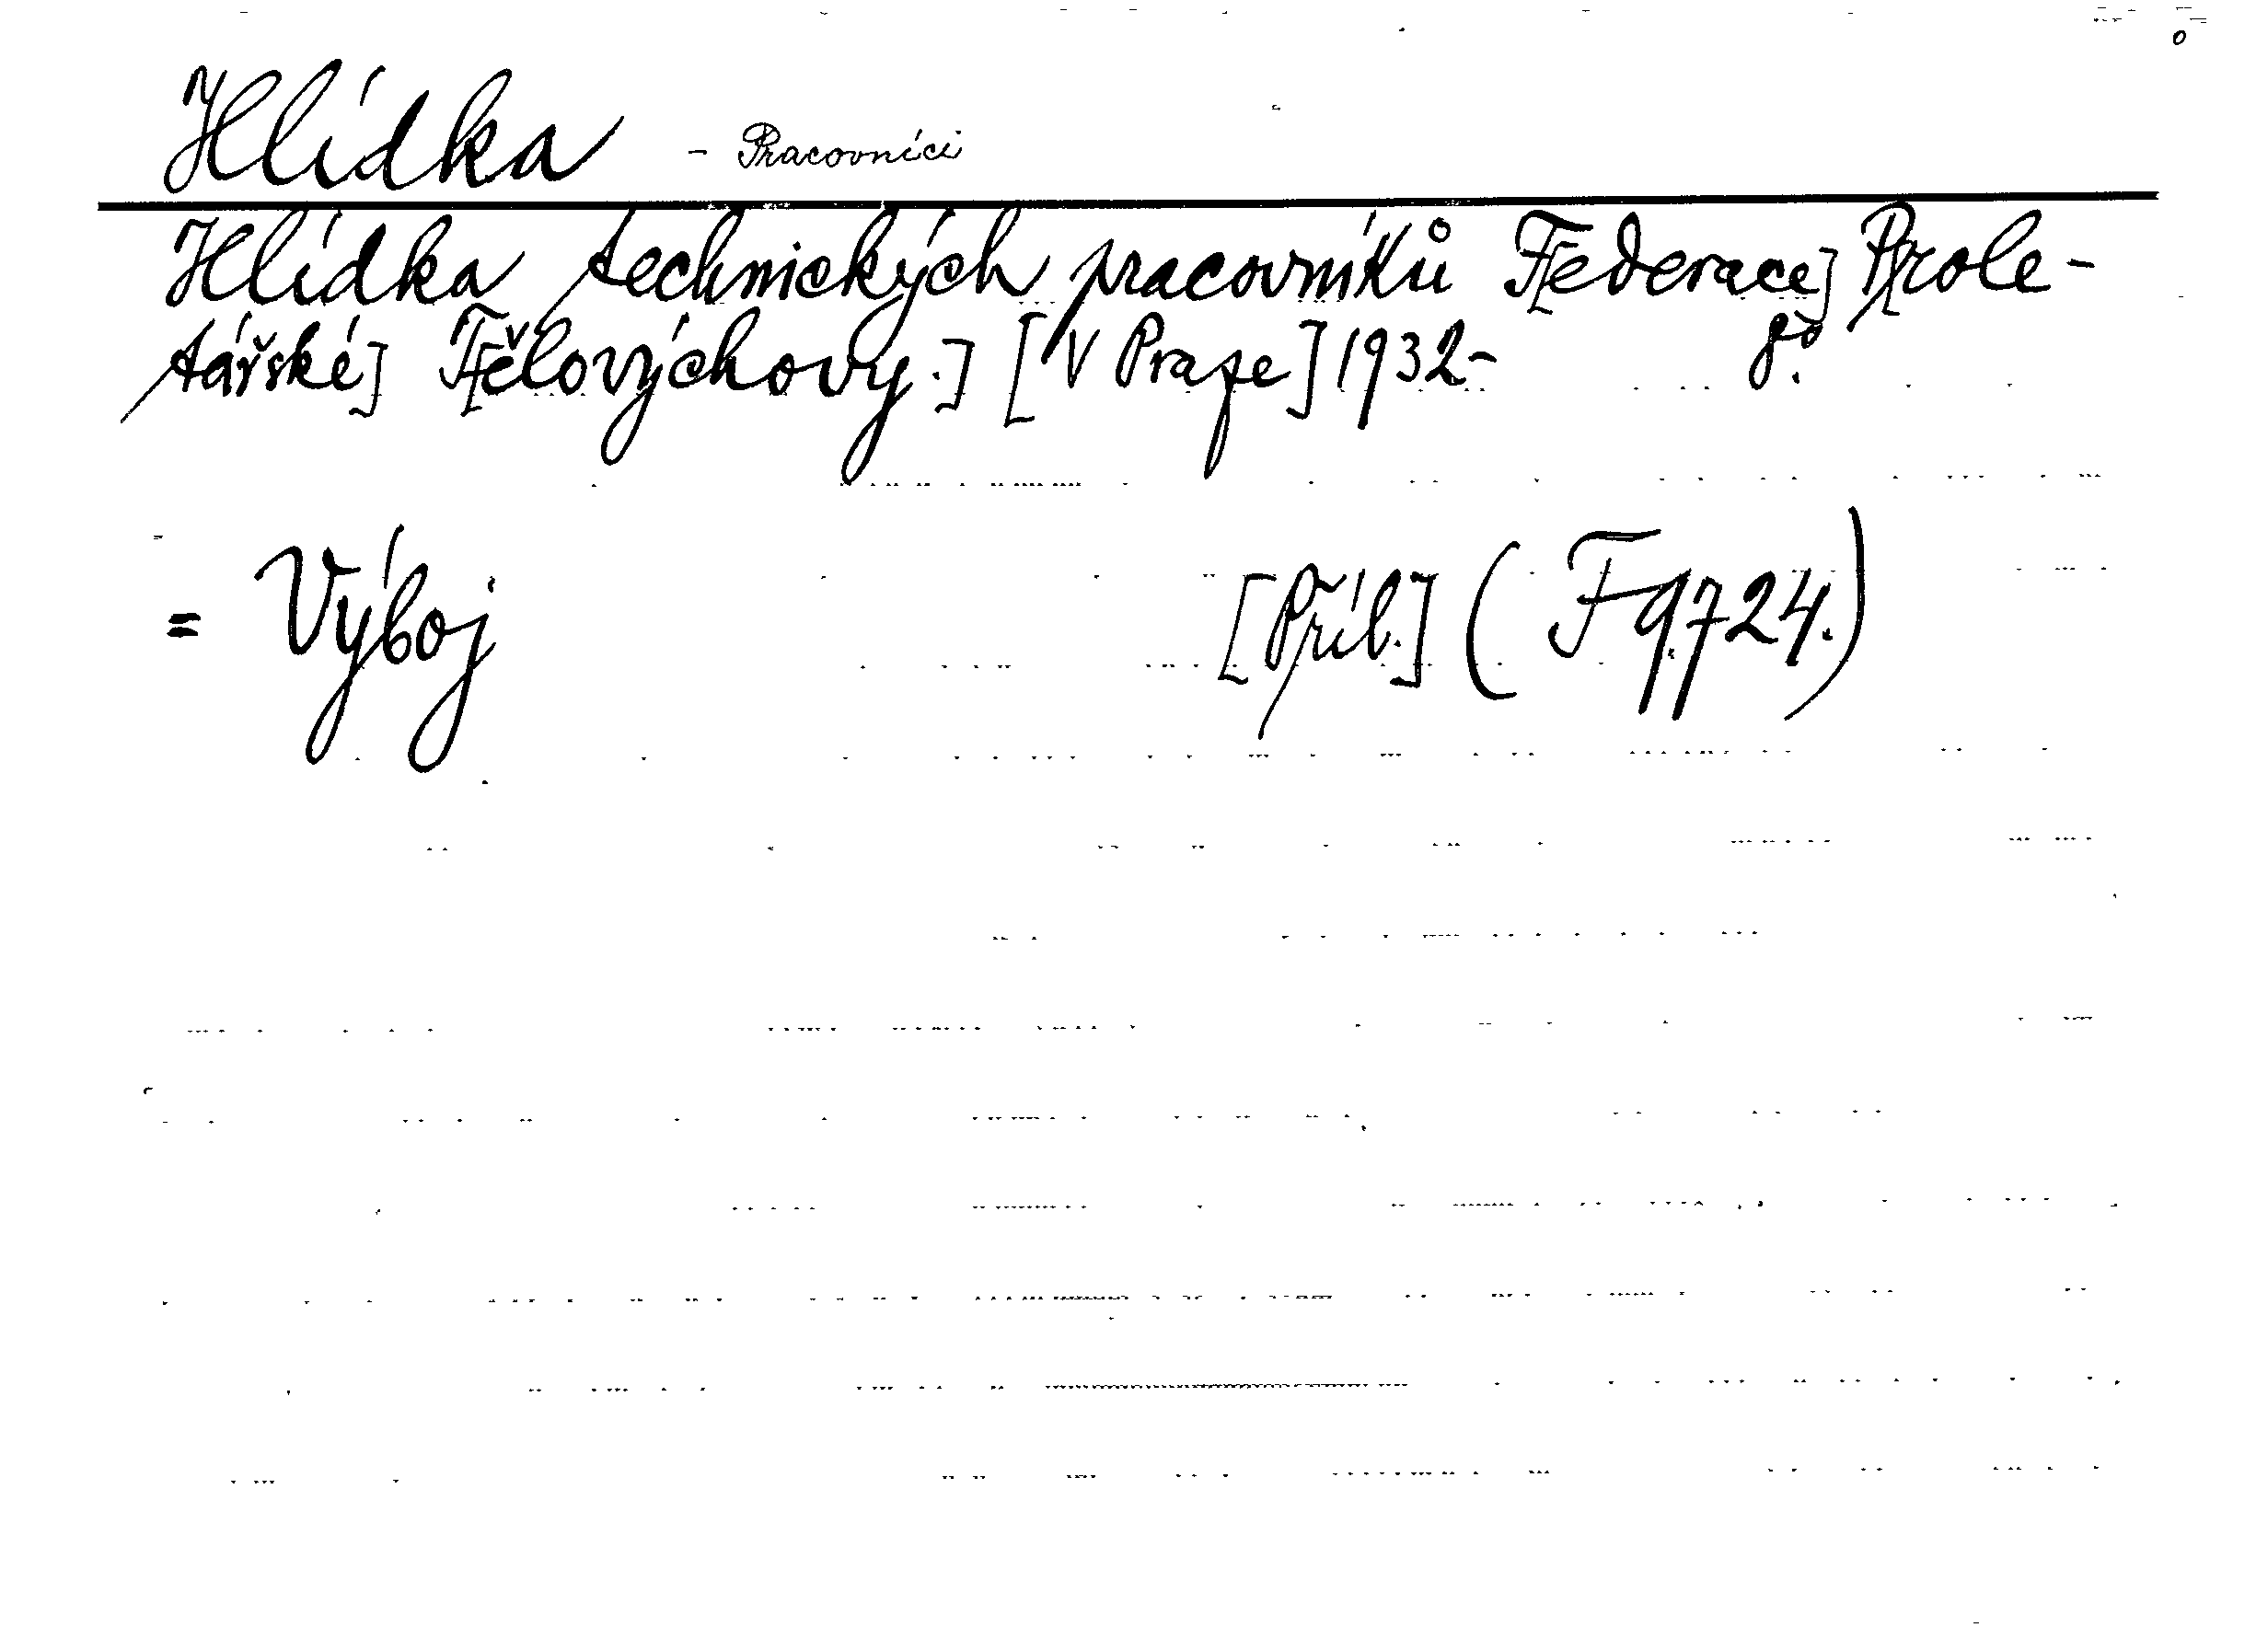 Hlídka - Pracovníci
Hlídka technických pracovníků F[ederace] P[role-
tářské] T[ělovýchovy.] [V Praze] 1932- 8°.
= Výboj [Příl.] (F 9.724.)